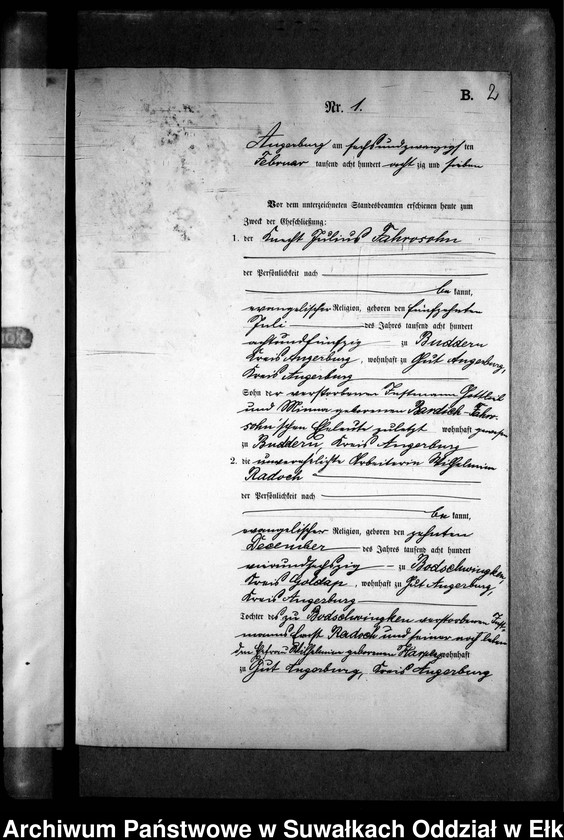 B. 2
Nr. 1.
Angerburg am sechsundzwanzigsten
Februar tausend acht hundert achtzig und sieben
Vor dem unterzeichneten Standesbeamten erschienen heute zum
Zweck der Eheschließung:
1. der Knecht Julius Fahrosohn
der Persönlichkeit nach
be kannt,
evangelischer Religion, geboren den fünfzehnten
Juli des Jahres tausend acht hundert
achtundfünfzig zu Buddern
Kreis Angerburg, wohnhaft zu Gut Angerburg,
Kreis Angerburg
Sohn der verstorbenen Instmann Gottlieb
und Minna geborenen Bardeck-Fahro-
sohn'schen Eheleute zuletzt wohnhaft gewesen
zu Buddern Kreis Angerburg
2. die unverehelichte Arbeiterin Wilhelmine
Radoch
der Persönlichkeit nach
be kannt,
evangelischer Religion, geboren den zehnten
December des Jahres tausend acht hundert
vierundsechszig zu Bodschwingken,
Kreis Goldap, wohnhaft zu Gut Angerburg,
Kreis Angerburg
Tochter des zu Bodschwingken verstorbenen Inst-
manns Radoch und seiner noch leben
den Ehefrau Wilhelmine geborenen wohnhaft
zu Gut Angerburg, Kreis Angerburg
Archiwum Państwowe w Suwałkach Oddział w Ełk